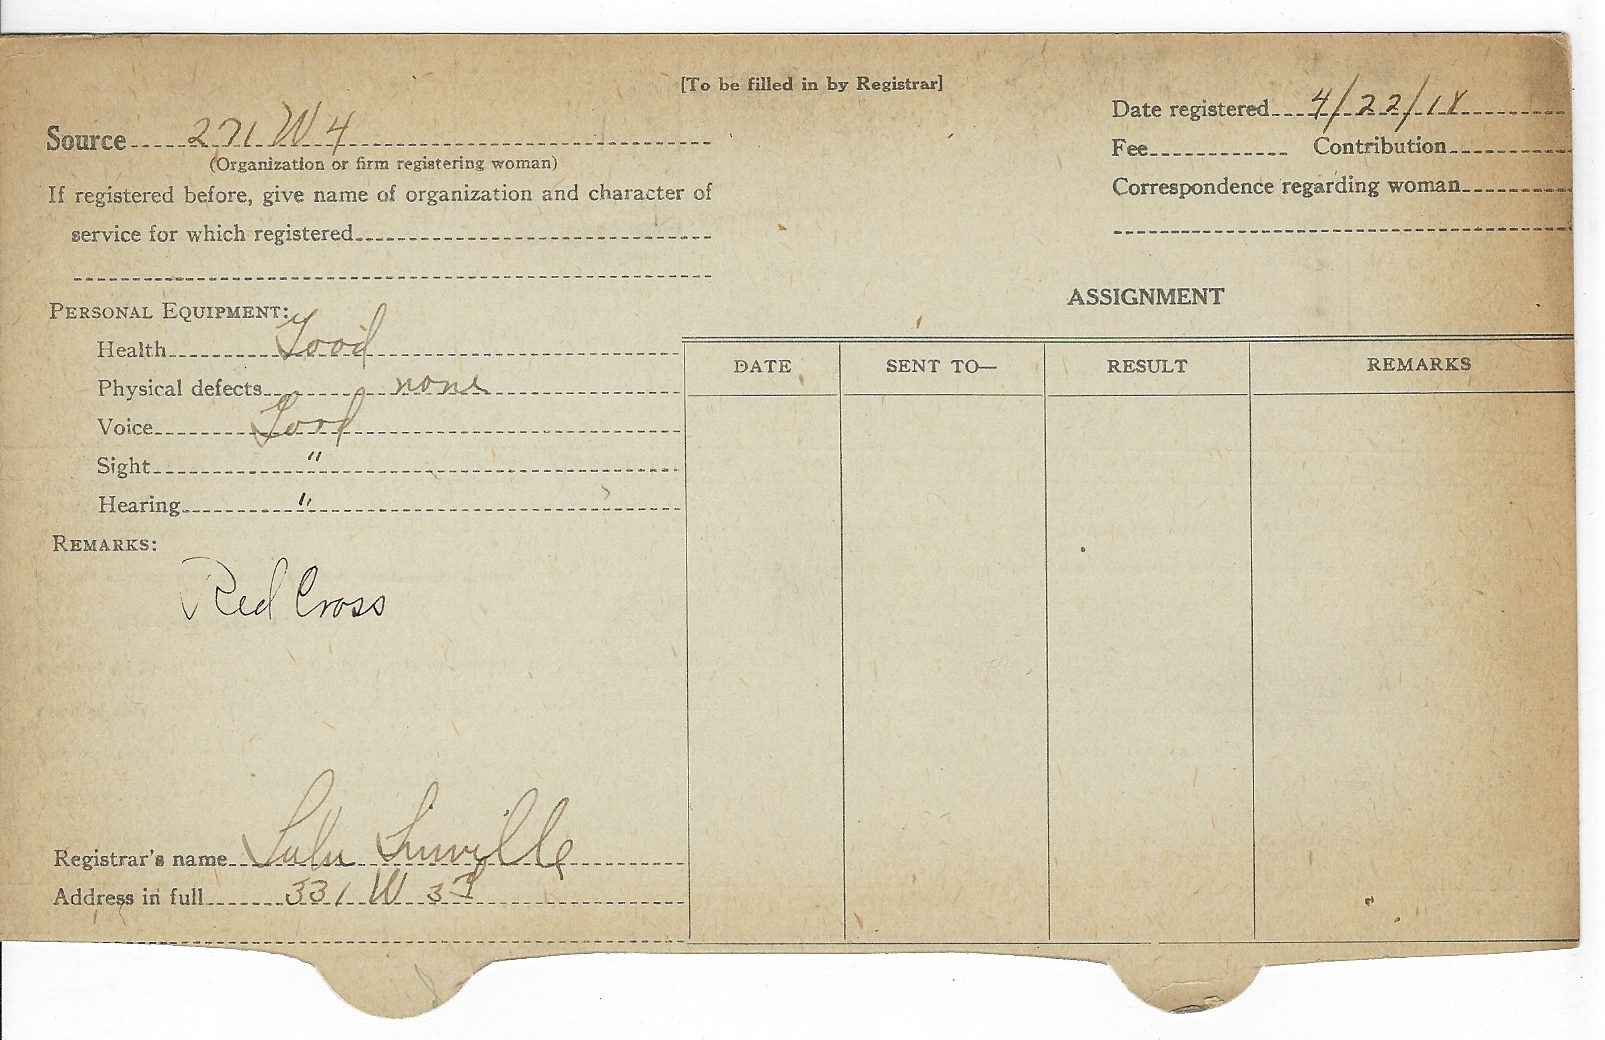 [To be filled in by Registrar]
Source 271 W 4
(Organization or firm registering woman)
If registered before, give name of organization and character of
service for which registered
Date registered 4/22/18
Fee Contribution
Correspondence regarding woman
PERSONAL EQUIPMENT:
Health Good
Physical defects none
Voice Good
Sight "
Hearing "
REMARKS:
Red Cross
Registrar's name Lulu Linville
Address in full 331 W 3d
ASSIGNMENT
DATE SENT TO— RESULT REMARKS